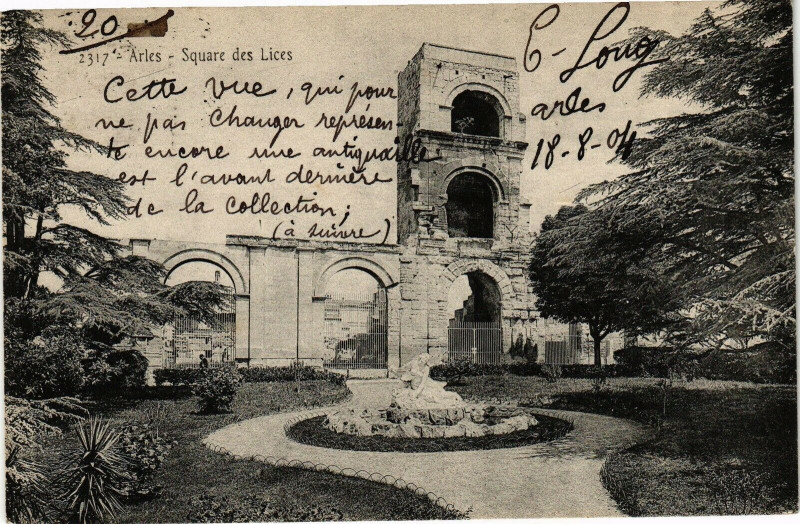 20
2317 - Arles - Square des Lices
Cette vue, qui pour
ne pas changer représen-
te encore une antiquaille
est l'avant dernière
de la collection;
(à suivre)
C. Long
arles
18-8-04